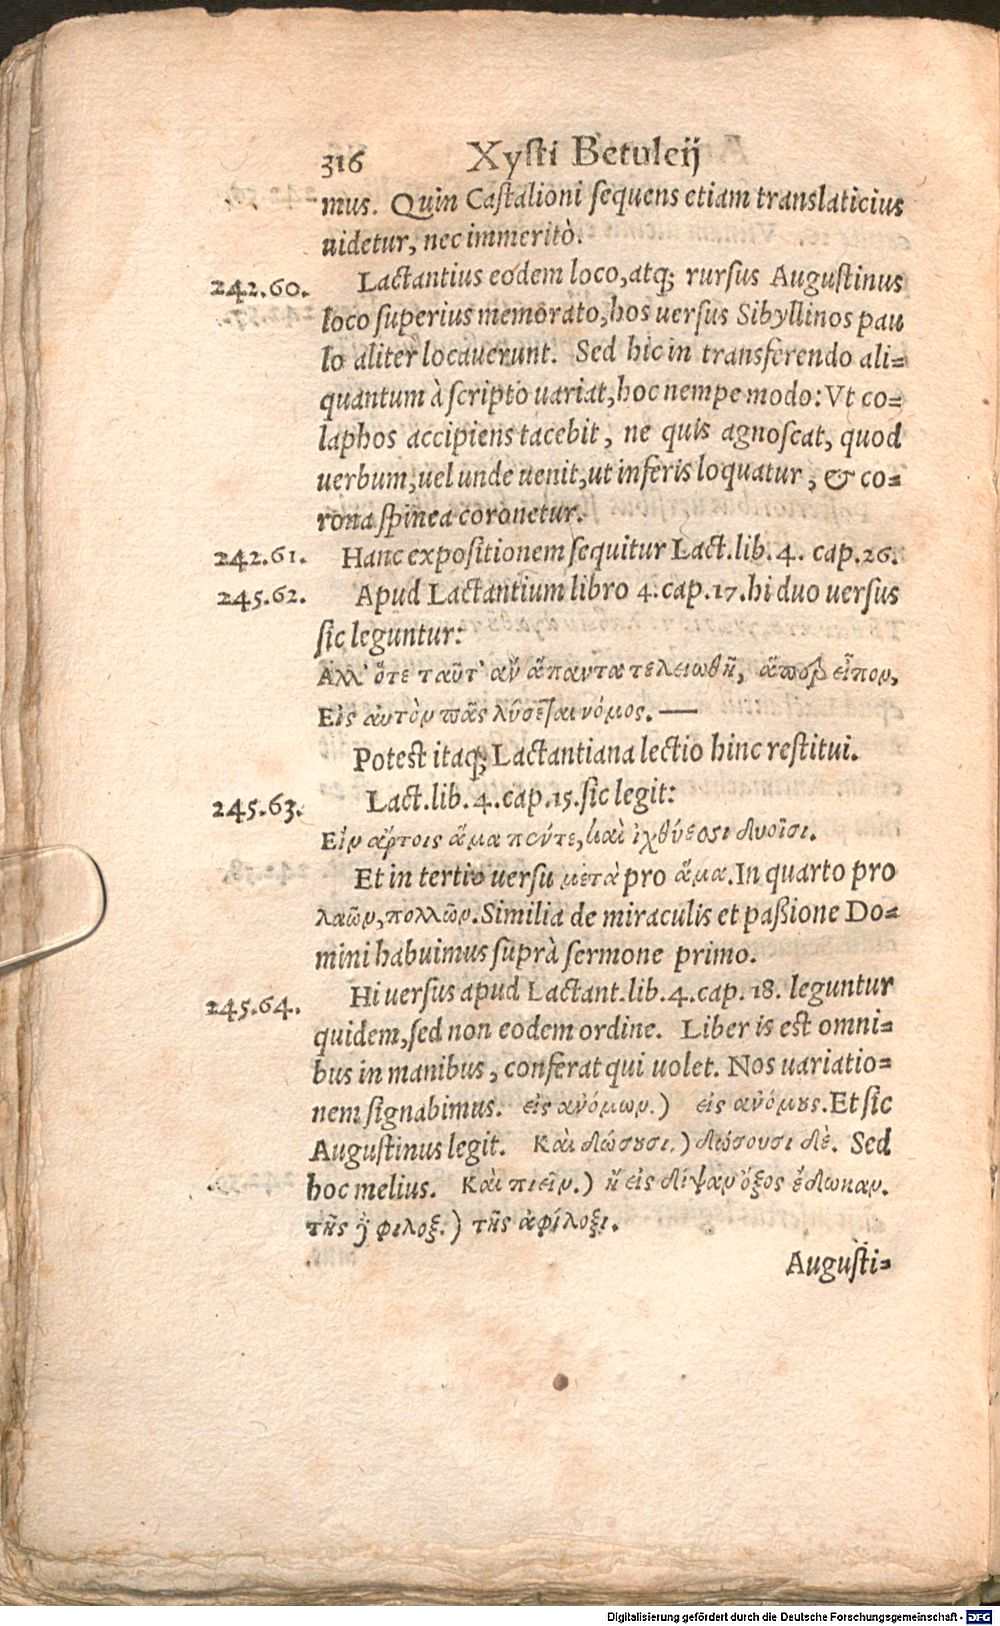 316 Xysti Betuleij
mus. Quin Castalioni sequens etiam translaticius
uidetur, nec immeritò.
242.60. Lactantius eodem loco, atq; rursus Augustinus
loco superius memorato, hos uersus Sibyllinos pau
lo aliter locauerunt. Sed hic in transferendo ali=
quantum à scripto uariat, hoc nempe modo: Vt co=
laphos accipiens tacebit, ne quis agnoscat, quod
uerbum, uel unde uenit, ut inferis loquatur, & co=
rona spinea coronetur.
242.61. Hanc expositionem sequitur Lact. lib. 4. cap. 26.
245.62. Apud Lactantium libro 4. cap. 17. hi duo uersus
sic leguntur:
Ἀλλ' ὅτε ταῦτ' ἂν ἅπαντα τελειωθῇ, ἅπερ εἶπον,
Εἰς αὐτὸν πᾶς λύσεται νόμος. —
Potest itaq; Lactantiana lectio hinc restitui.
245.63. Lact. lib. 4. cap. 15. sic legit:
Εἰν ἄρτοις ἅμα πέντε, καὶ ἰχθύεσσι δυοῖσι.
Et in tertio uersu μετὰ pro ἅμα. In quarto pro
λαῶν, πολλῶν. Similia de miraculis et passione Do=
mini habuimus suprà sermone primo.
245.64. Hi uersus apud Lactant. lib. 4. cap. 18. leguntur
quidem, sed non eodem ordine. Liber is est omni=
bus in manibus, conferat qui uolet. Nos uariatio=
nem signabimus. εἰς ἀνόμων.) εἰς ἀνόμους. Et sic
Augustinus legit. Καὶ δώσουσι.) δώσουσι δὲ. Sed
hoc melius. Καὶ πιεῖν.) ἢ εἰς δίψαν ὄξος ἔδωκαν.
τῆς φιλοξ.) τῆς ἀφίλοξι.
Augusti=
Digitalisierung gefördert durch die Deutsche Forschungsgemeinschaft - DFG